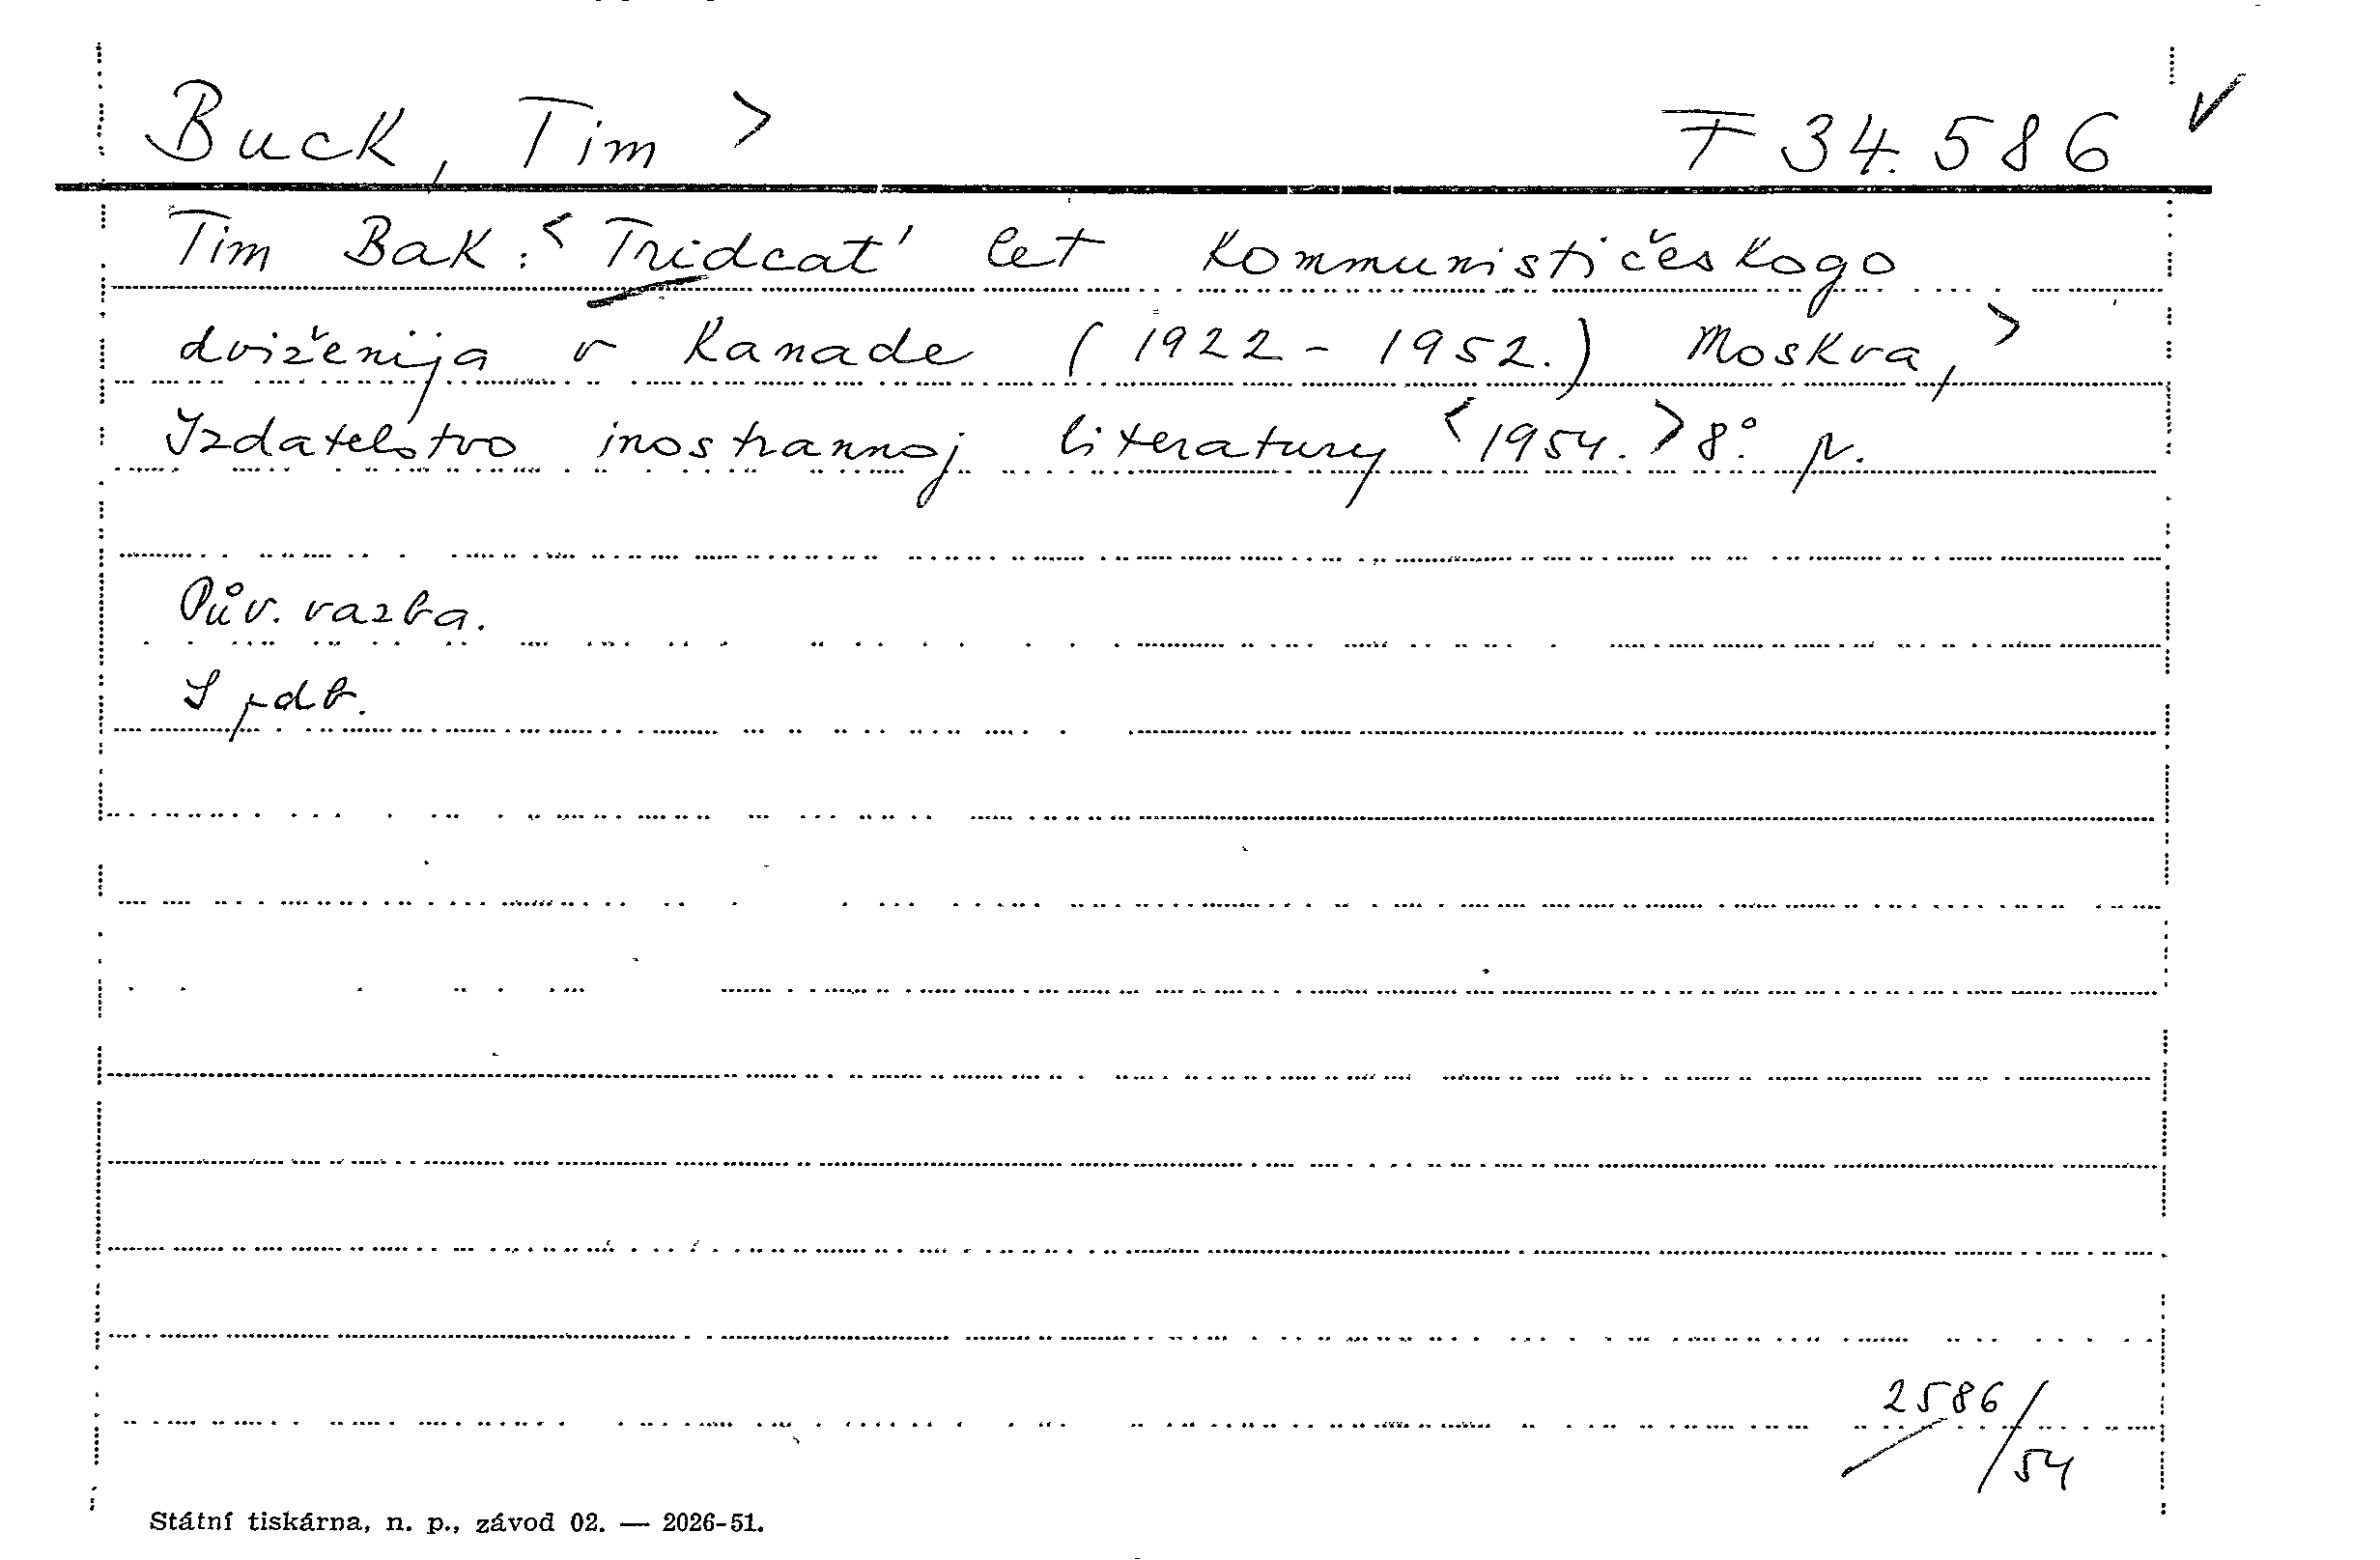 Buck, Tim > F 34.586 ✓
Tim Bak: < Tridcat' let kommunističeskogo
dviženija v Kanade (1922-1952.) Moskva, >
Izdatelstvo inostrannoj literatury <1954.> 8° p.
Pův. vazba.
S pdb.
2586/
54
Státní tiskárna, n. p., závod 02. — 2026-51.